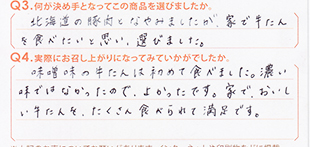 Q3.何が決め手となってこの商品を選びましたか。
北海道の豚肉となやみましたが、家で牛たん
を食べたいと思い、選びました。
Q4.実際にお召し上がりになってみていかがでしたか。
味噌味の牛たんは初めて食べました。濃い
味ではなかったので、よかったです。家で、おいし
い牛たんを、たくさん食べられて満足です。